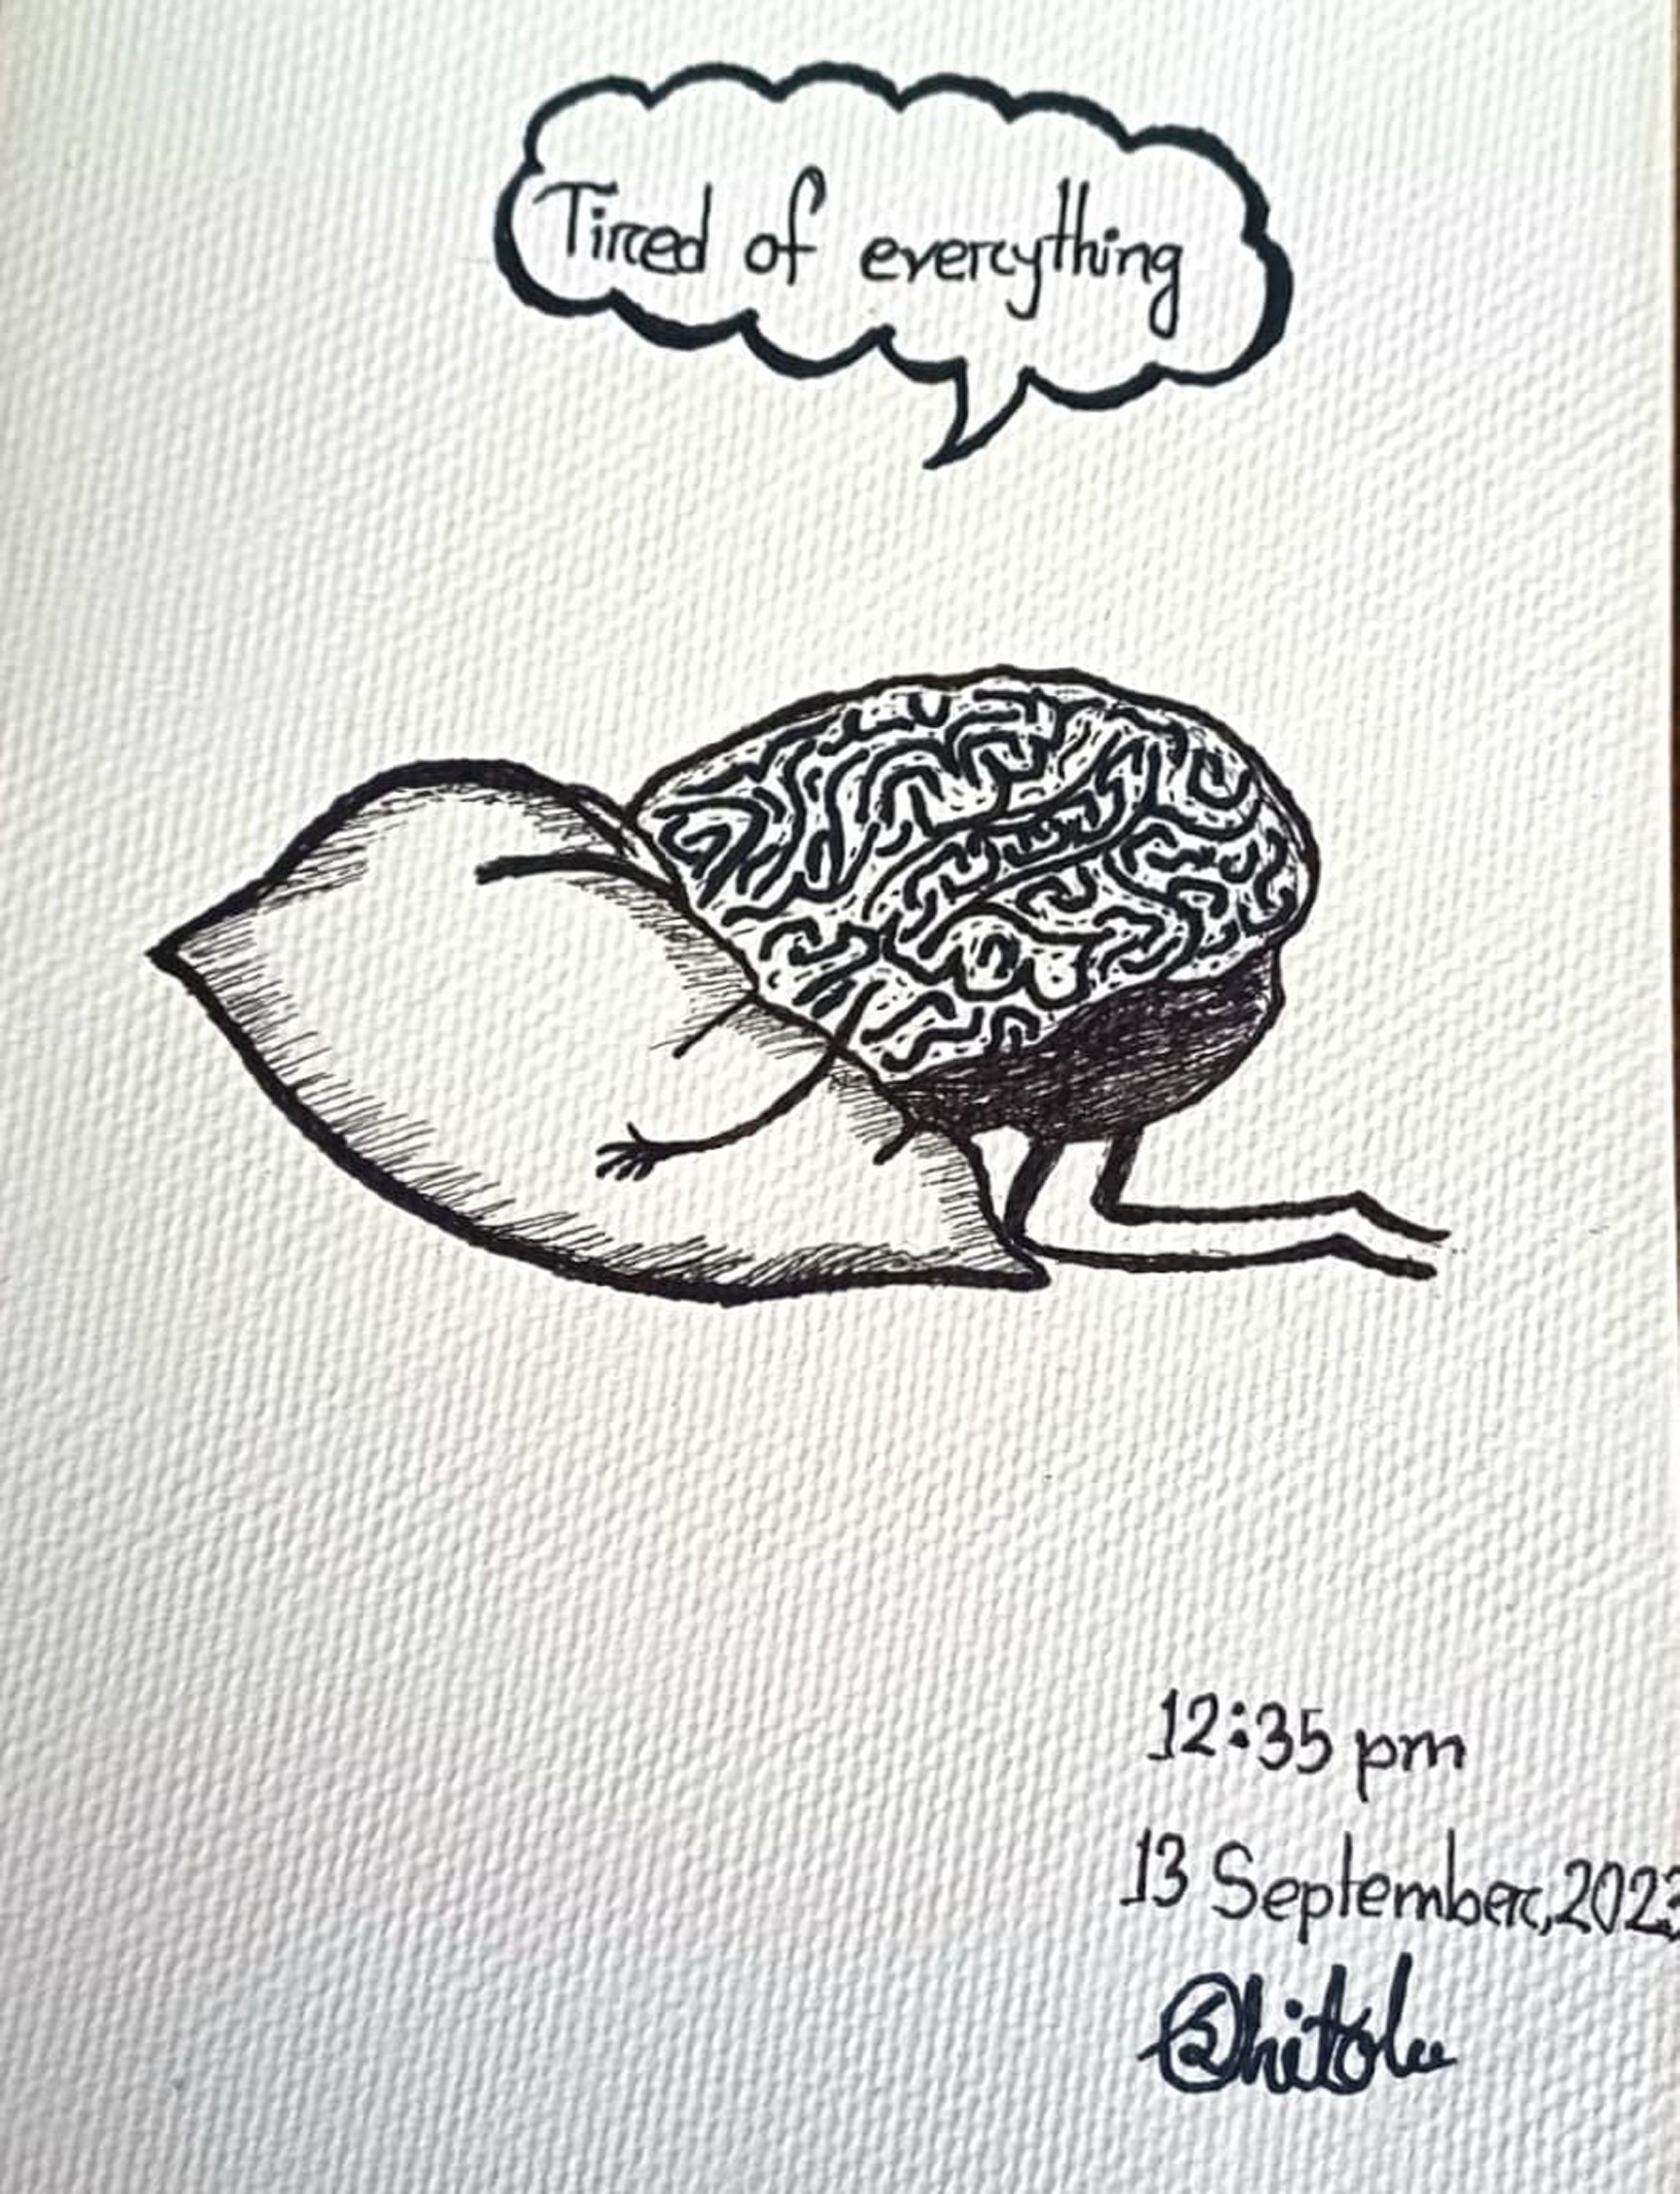 Tired of everything
12:35 pm
13 September, 2023
@hitolu